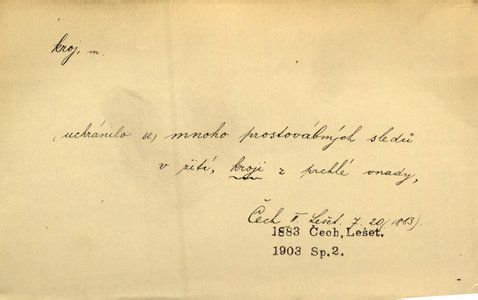 kroj, m.
(uchránilo se) mnoho prostovábných sledů
v žití, kroji z prchlé vnady,
Čech II. Lešet. 7. 20, 1883).
1883 Čech, Lešet.
1903 Sp.2.